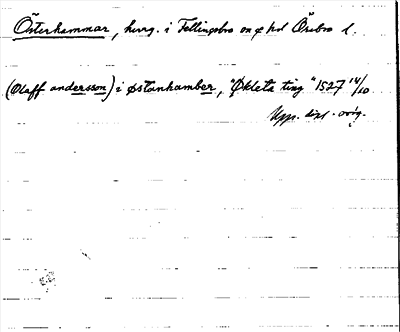 Österhammar, herrg. i Fellingsbro sn o hd Örebro l.
(Olaff andersson) i østanhamber, "Økleta ting" 1527 14/10
Upps. dipl. orig.